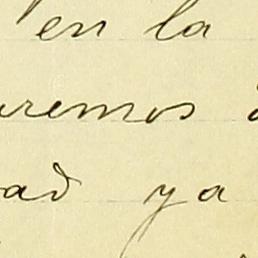 en la
uremos
ad ya